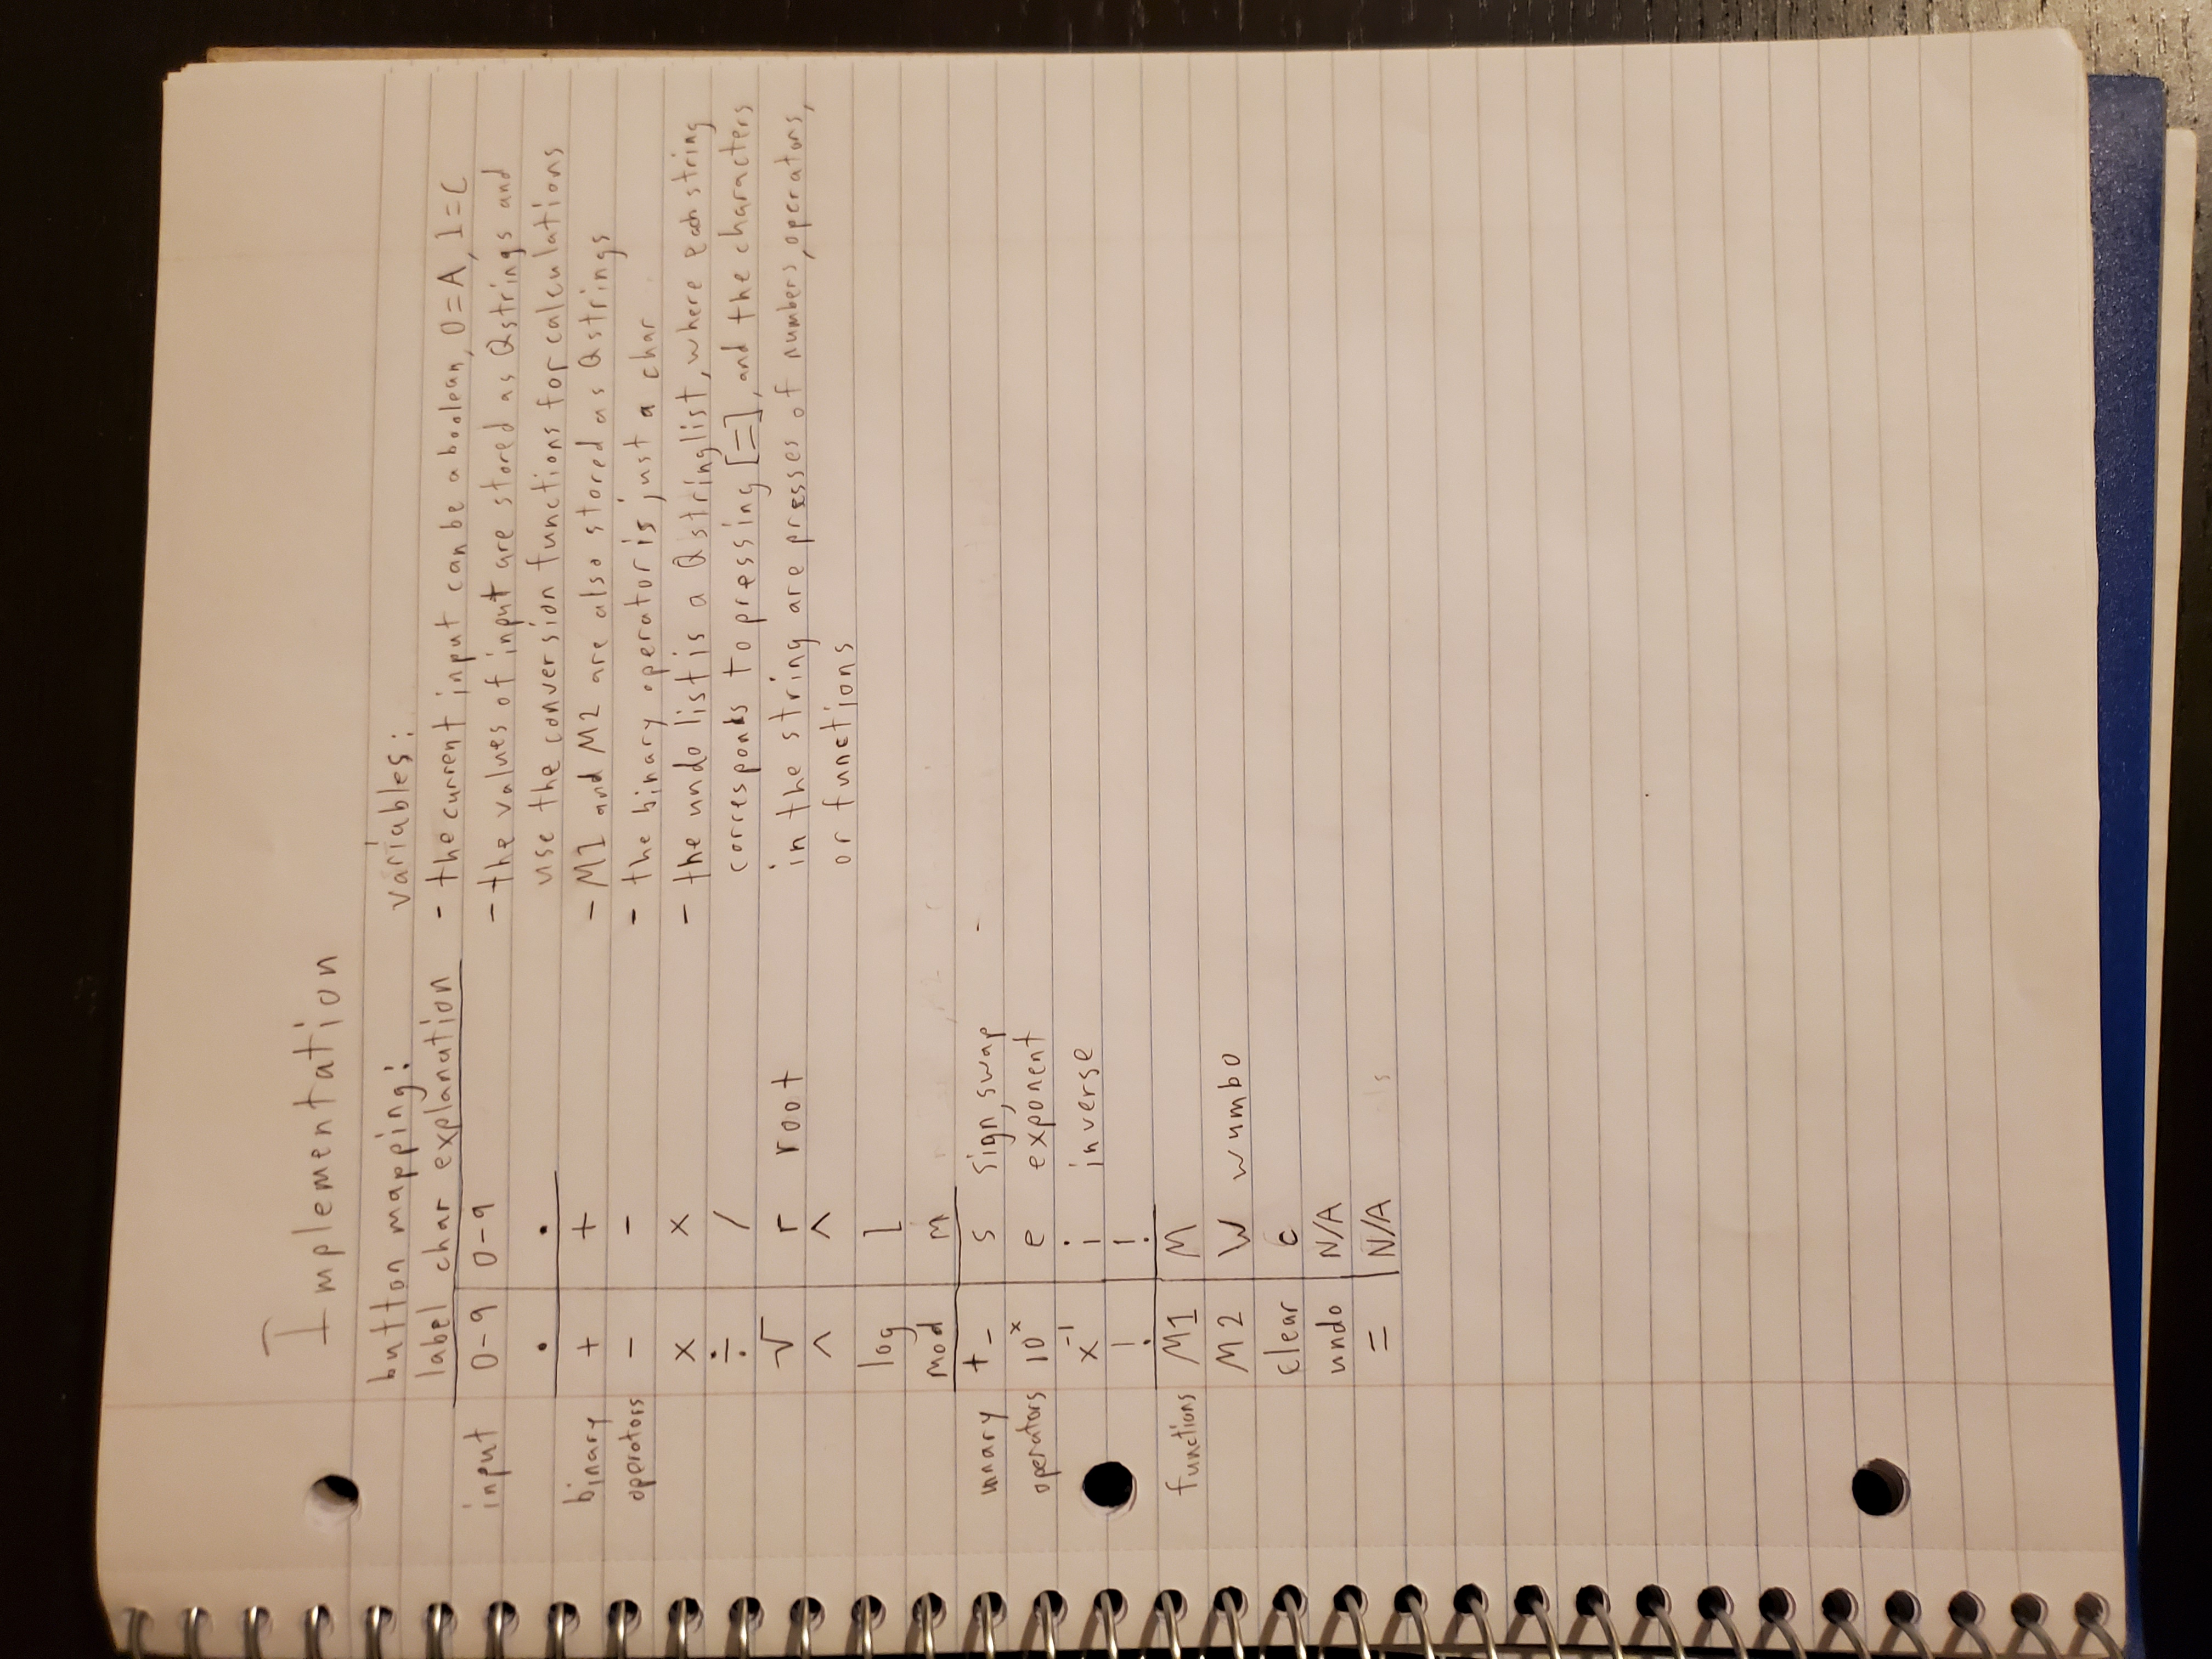 Implementation
button mapping:
label char explanation
input 0-9 0-9
. .
binary + +
operators - -
x x
÷ /
√ r root
^ ^
log l
mod m
unary +- s sign, swap
operators 10^x e exponent
x^-1 i inverse
! !
functions M1 M
M2 W wumbo
clear c
undo N/A
= N/A
variables:
- the current input can be a boolean, 0=A, 1=C
- the values of input are stored as Qstrings and
use the conversion functions for calculations
- M1 and M2 are also stored as Qstrings
- the binary operator is just a char
- the undo list is a Qstringlist, where each string
corresponds to pressing [=], and the characters
in the string are presses of numbers, operators,
or functions
-